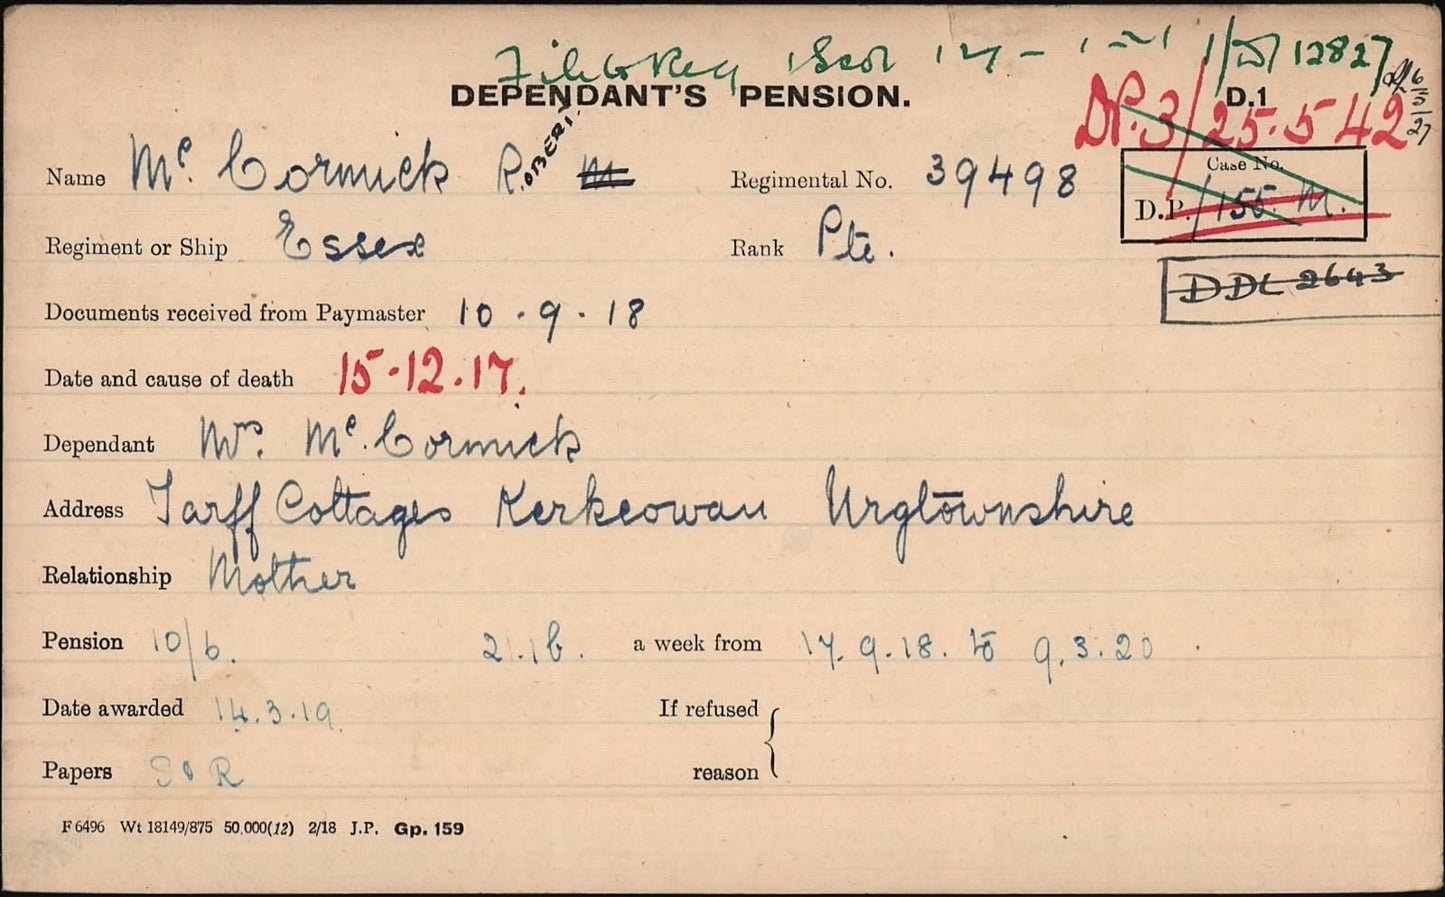 File to Reg 1/D/12827
DEPENDANT'S PENSION. D.1
DP.3/25.5.42
6/5/27
Name Mc. Cormick R.OBERT. M Regimental No. 39498
Case No.
D.P./155. M.
Regiment or Ship Essex Rank Pte.
DDL 2643
Documents received from Paymaster 10.9.18
Date and cause of death 15.12.17.
Dependant Mrs. Mc. Cormick
Address Tarff Cottages Kerkcowan Urgtownshire
Relationship Mother
Pension 10/6. 21.1b. a week from 17.9.18. to 9.3.20
Date awarded 14.3.19. If refused
Papers S & R reason
F 6496 Wt 18149/875 50,000(12) 2/18 J.P. Gp. 159